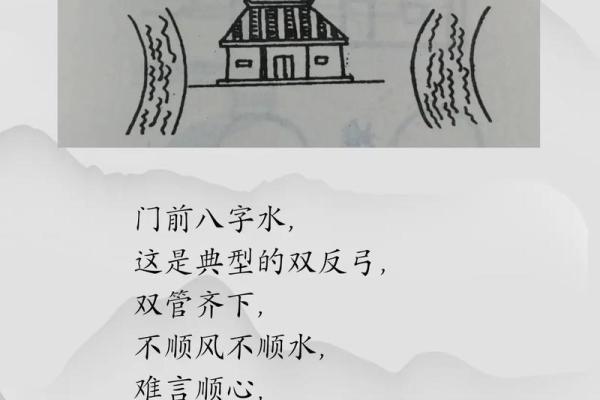 门前八字水,
这是典型的双反弓,
双管齐下,
不顺风不顺水,
难言顺心,